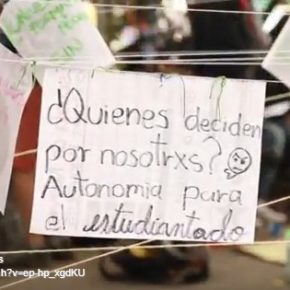 ¿Quienes deciden
por nosotrxs?
Autonomia para
el estudiantado
s
h?v=ep-hp_xgdKU